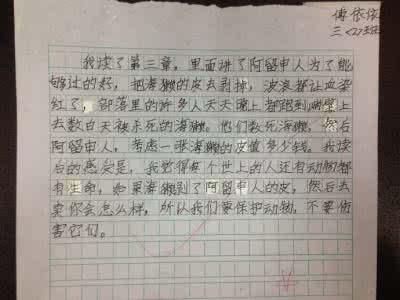 傅依依
三<2>班
我读了第三章，里面讲了阿留申人为了能
够过的好，把海獭的皮去剥掉，波浪都让血染
红了，部落里的许多人天天晚上都跑到峭壁上
去数白天被杀死的海獭。他们数死海獭，然后
阿留申人，考虑一张海獭的皮值多少钱。我读
后的感受是，我觉得每个世上的人还有动物都
有生命，如果海獭剥了阿留申人的皮，然后去
卖你会怎么样，所以我们要保护动物，不要伤
害它们。